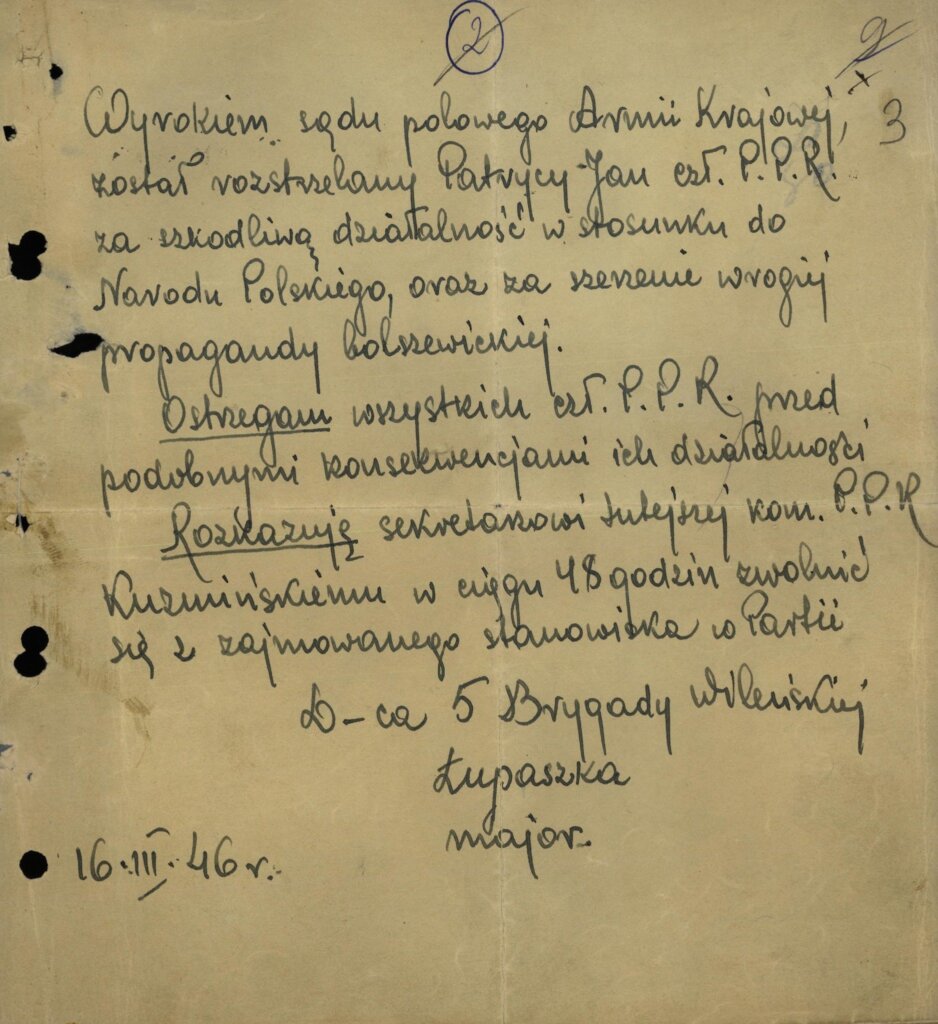 2
2
3
Wyrokiem sądu polowego Armii Krajowej,
został rozstrzelany Patrycy Jan czł. P.P.R.
za szkodliwą działalność w stosunku do
Narodu Polskiego, oraz za szerzenie wrogiej
propagandy bolszewickiej.
Ostrzegam wszystkich czł. P.P.R. przed
podobnymi konsekwencjami ich działalności
Rozkazuję sekretarzowi tutejszej kom. P.P.R
Kuzmińskiemu w ciągu 48 godzin zwolnić
się z zajmowanego stanowiska w Partii
D-ca 5 Brygady Wileńskiej
Łupaszka
major.
16.III.46r.